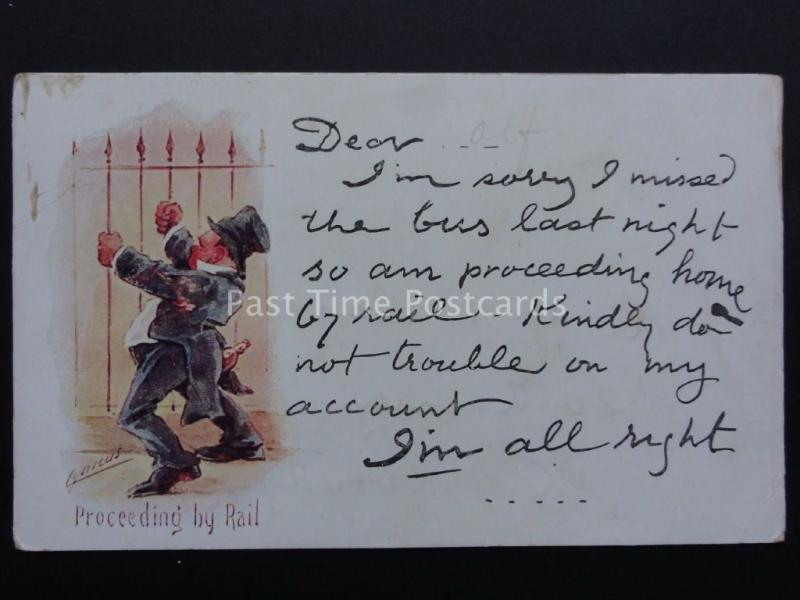 Dear ... Alf
I'm sorry I missed
the bus last night
so am proceeding home
by rail - Kindly do
not trouble on my
account
I'm all right
.....
Cynicus
Proceeding by Rail
Past Time Postcards